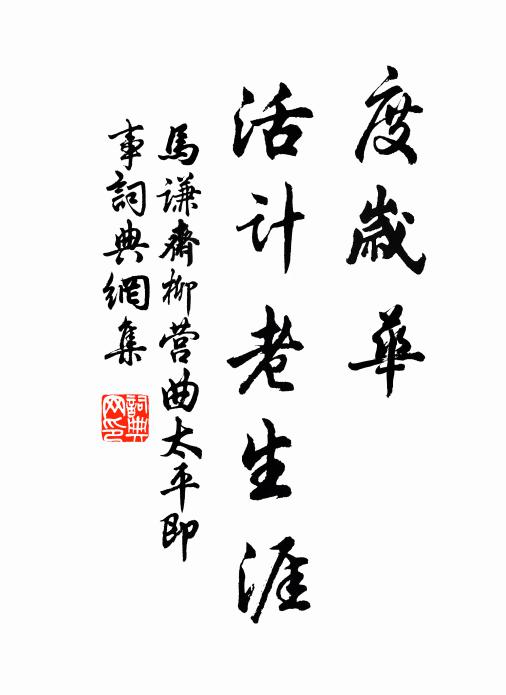 度歲華
活計老生涯
馬谦齋柳营曲太平即
事詞典網集
詞典
网印